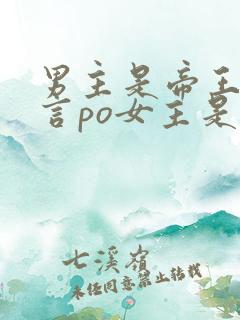 男主是帝王
言po女主是
七溪岭
未经同意禁止转载